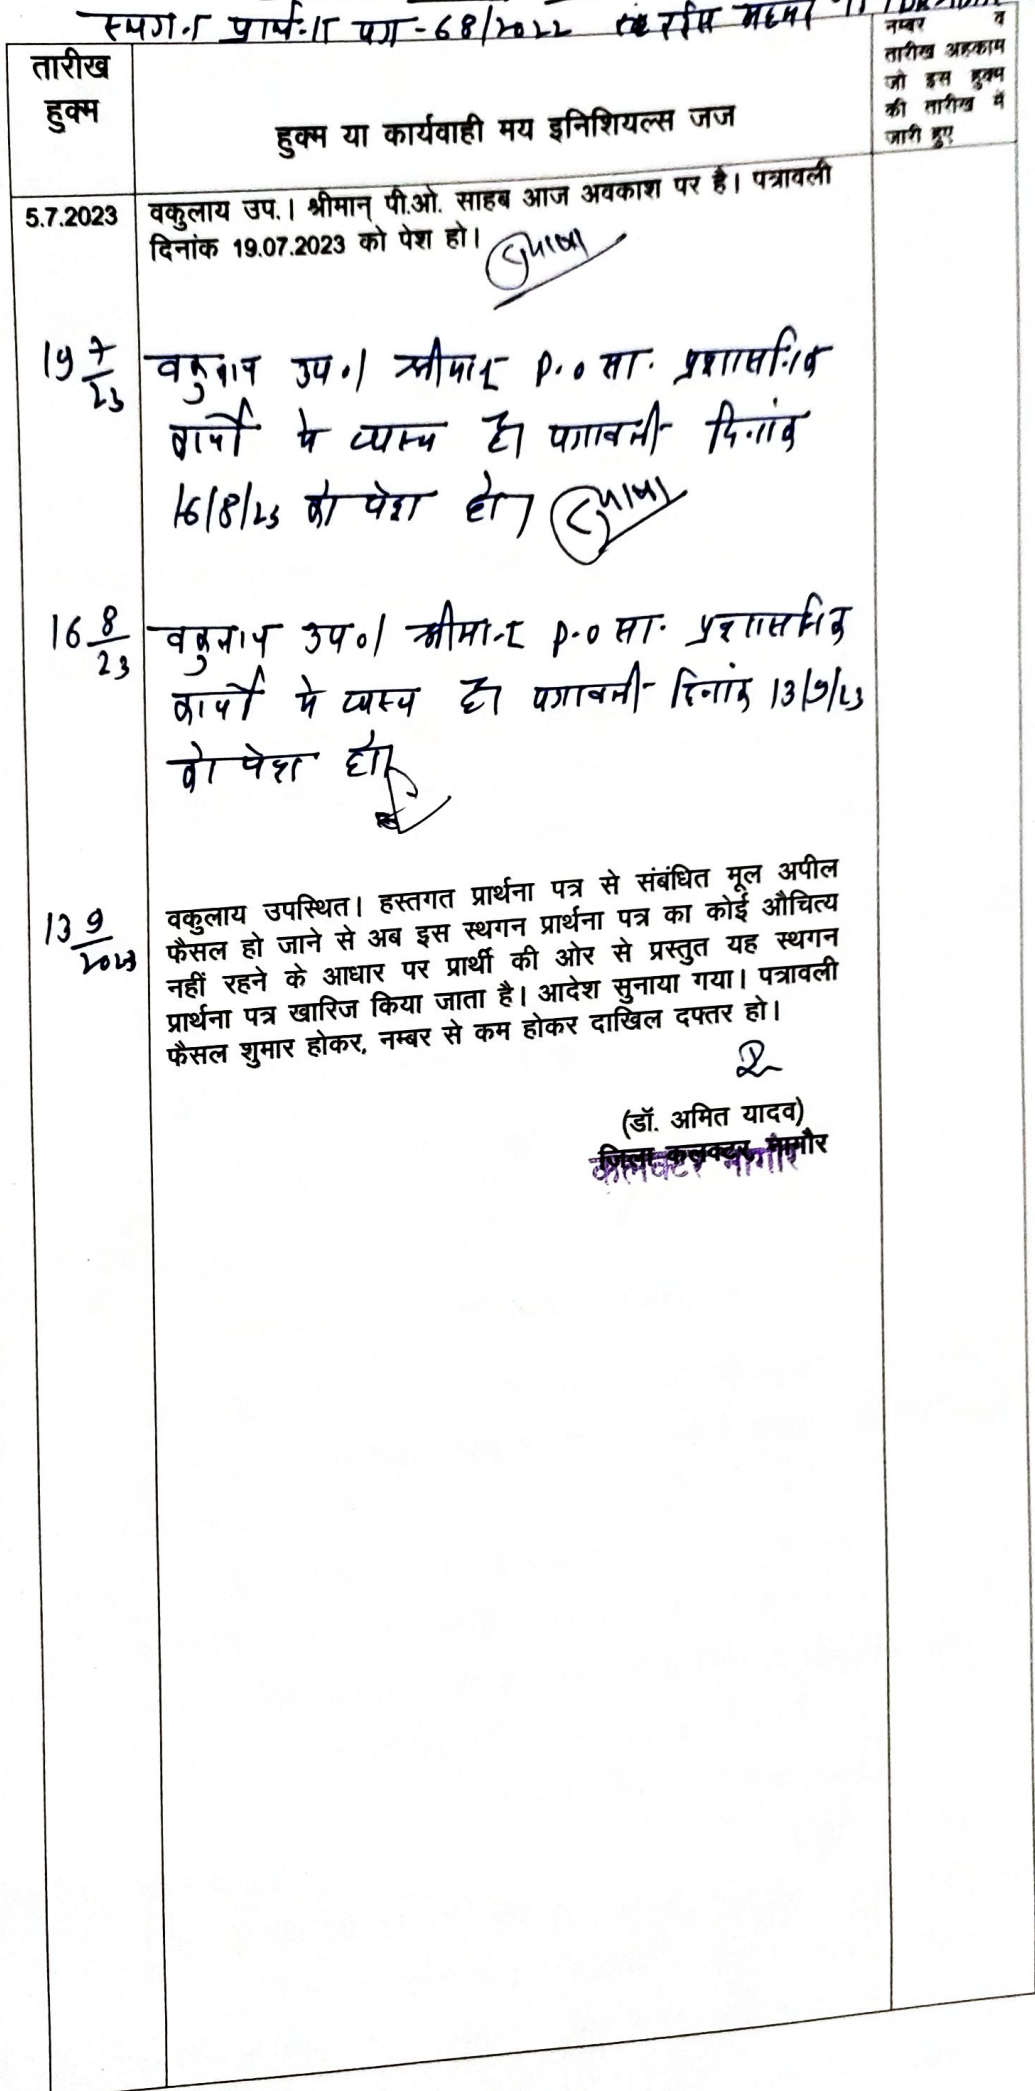 स्थगन प्रार्थना पत्र - 68/2022
तारीख
हुक्म
हुक्म या कार्यवाही मय इनिशियल्स जज
नम्बर व
तारीख अहकाम
जो इस हुक्म
की तारीख में
जारी हुए
5.7.2023
वकुलाय उप.। श्रीमान् पी.ओ. साहब आज अवकाश पर है। पत्रावली
दिनांक 19.07.2023 को पेश हो।
19 7/23
वकुलाय उप०। श्रीमान P.O सा. प्रशासनिक
कार्यो मे व्यस्त है। पत्रावली दिनांक
16/8/23 को पेश हो।
16 8/23
वकुलाय उप०। श्रीमान P.O सा. प्रशासनिक
कार्यो मे व्यस्त है। पत्रावली दिनांक 13/9/23
को पेश हो।
13 9/2023
वकुलाय उपस्थित। हस्तगत प्रार्थना पत्र से संबंधित मूल अपील
फैसल हो जाने से अब इस स्थगन प्रार्थना पत्र का कोई औचित्य
नहीं रहने के आधार पर प्रार्थी की ओर से प्रस्तुत यह स्थगन
प्रार्थना पत्र खारिज किया जाता है। आदेश सुनाया गया। पत्रावली
फैसल शुमार होकर, नम्बर से कम होकर दाखिल दफ्तर हो।
(डॉ. अमित यादव)
जिला कलक्टर, नागौर
कलक्टर नागौर